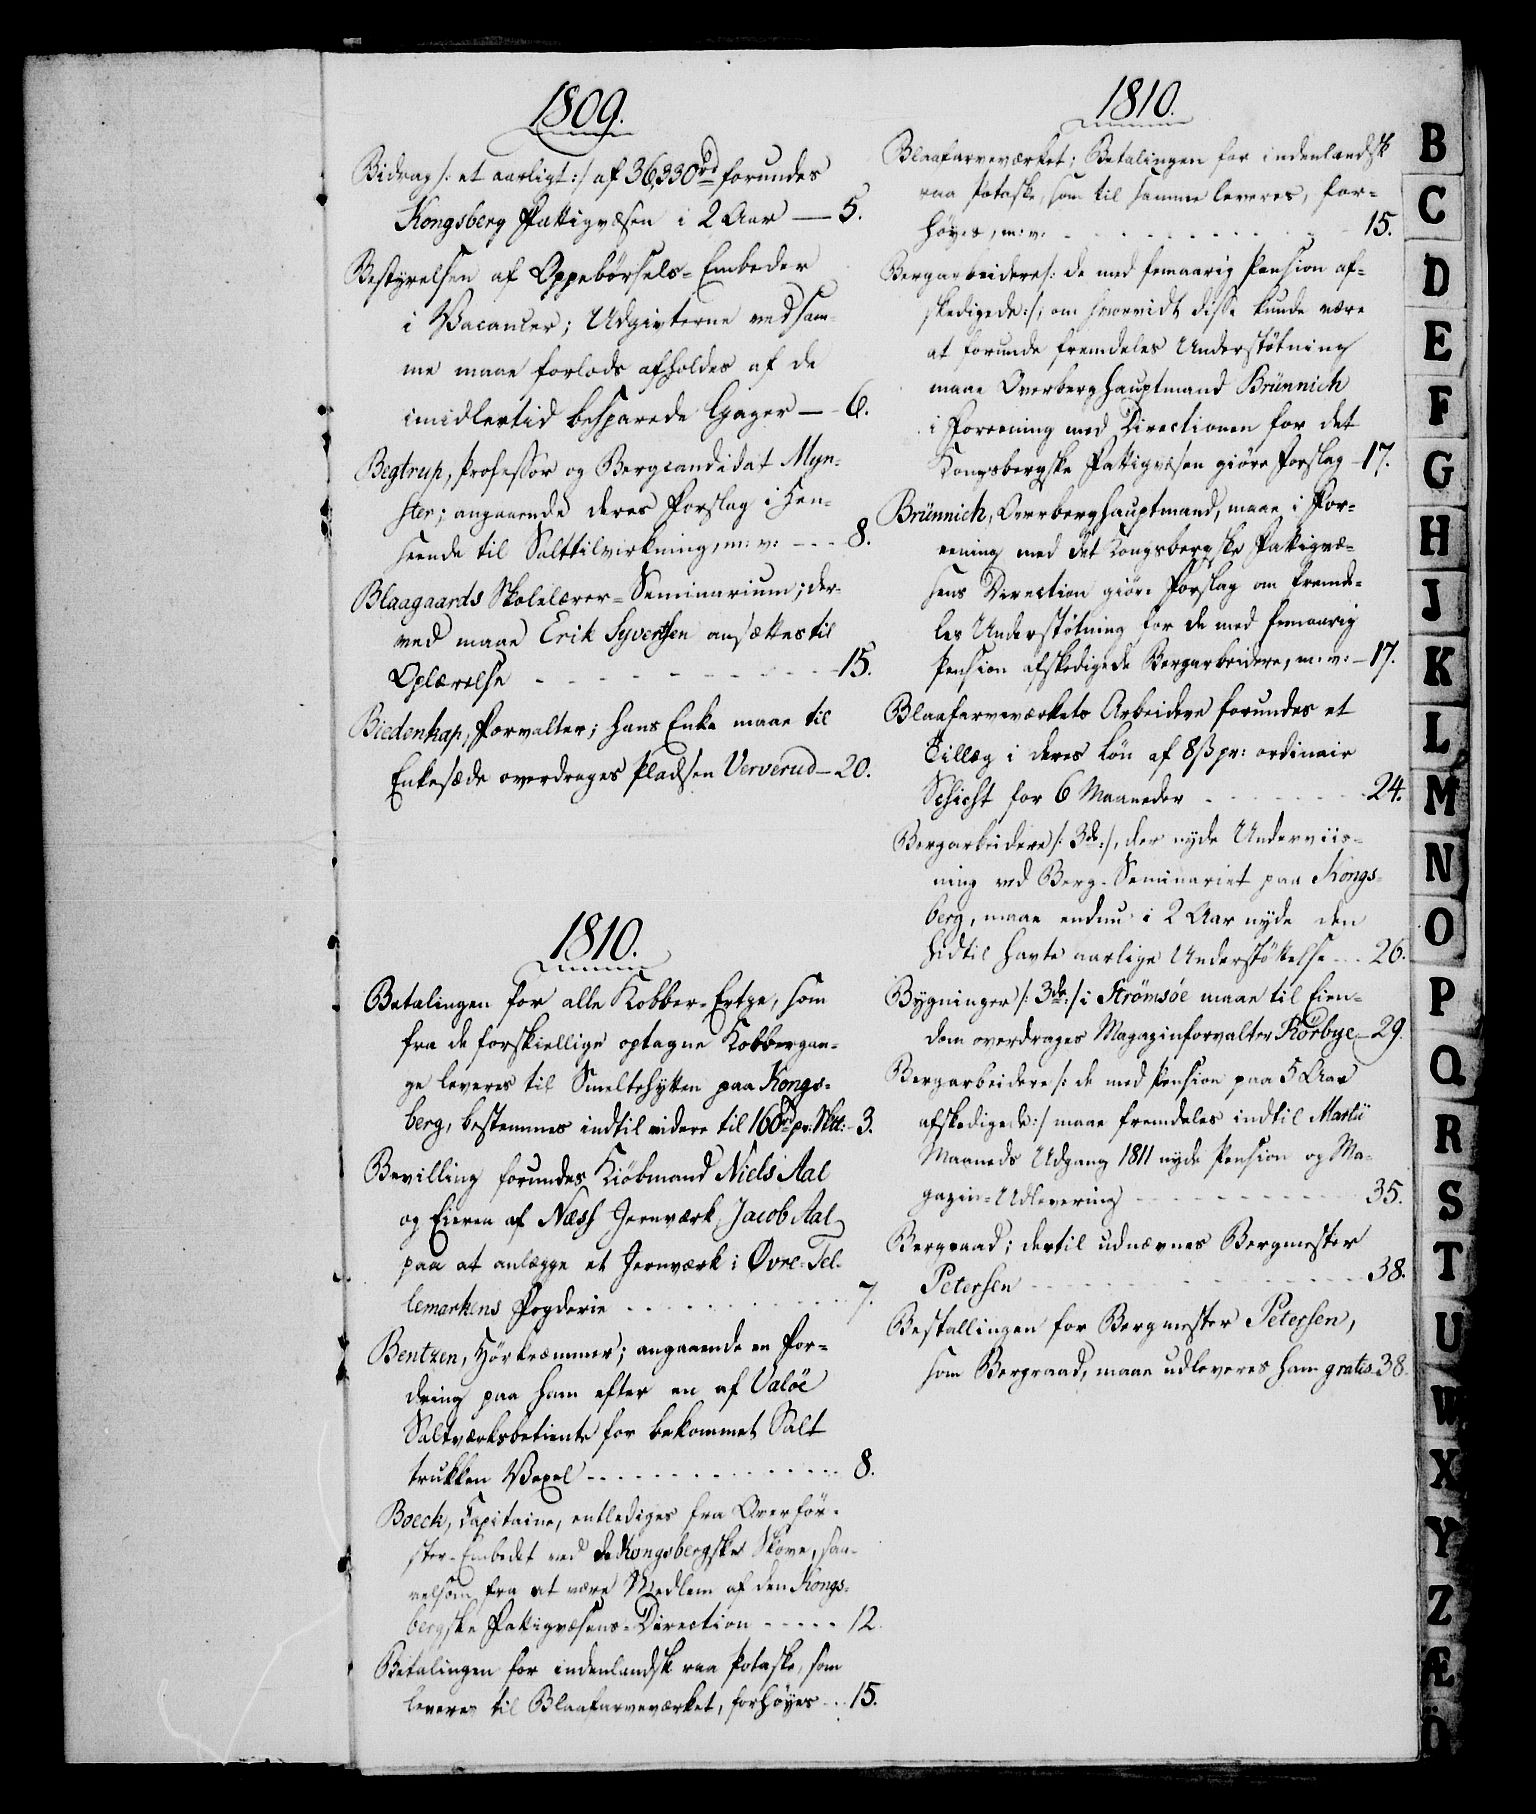 1809.
Bidrag /: et aarligt :/ af 36,330 rd forundes
Kongsberg Fattigvæsen i 2 Aar — 5.
Bestyrelsen af Oppebörsels-Embeder
i Vacancer; Udgivterne ved sam-
me maae forlods afholdes af de
imidlertid besparede Gager — 6.
Begtrup, Professor og Bergcandidat Myn-
ster; angaaende deres Forslag i Hen-
seende til Salttilvirkning, m: v: --- 8.
Blaagaards Skolelærer-Seminarium; der-
ved maae Erik Syvertsen ansættes til
Oplærelse - - - 15.
Biedenkap, Forvalter; hans Enke maae til
Enkesæde overdrages Pladsen Ververud - 20.
1810.
Betalingen for alle Kobber-Ertze, som
fra de forskiellige optagne Kobbergan-
ge leveres til Smeltehytten paa Kongs-
berg, bestemmes indtil videre til 160 rd pr. Sktt: - 3.
Bevilling forundes Kiöbmand Niels Aal
og Eieren af Næss Jernværk, Jacob Aal
paa at anlægge et Jernværk i Øvre-Tel-
lemarkens Fogderie - - - 7.
Bentzen, Hörkræmmer; angaaende en For-
dring paa ham efter en af Valöe
Saltværksbetiente for bekommet Salt
trukken Vexel - - - 8.
Boeck, Capitaine, entlediges fra Overför-
ster-Embedet ved de Kongsbergske Skove, saa-
velsom fra at være Medlem af den Kongs-
bergske Fattigvæsens-Direction - - - 12
Betalingen for indenlandsk raa Potaske, som
leveres til Blaafarveværket, forhöyes - - 15.
1810.
Blaafarveværket; Betalingen for indenlandsk
raa Potaske, som til samme leveres, for-
höyes, m: v: - - - 15.
Bergarbeidere /: de med femaarig Pension af-
skedigede :/; om hvorvidt disse kunde være
at forunde fremdeles Understötning
maae Overberghauptmand Brünnich
i Foreening med Directionen for det
Kongsbergske Fattigvæsen giöre Forslag - 17.
Brünnich, Overberghauptmand, maae i For-
eening med det Kongsbergske Fattigvæ-
sens Direction giöre Forslag om fremde-
les Understötning for de med femaarig
Pension afskedigede Bergarbeidere, m: v: - 17.
Blaafarveværkets Arbeidere forundes et
Tillæg i deres Lön af 8 ß pr: ordinair
Schicht for 6 Maaneder - - - 24.
Bergarbeidere /: 3de :/, der nyde Underviis-
ning ved Berg-Seminariet paa Kongs-
berg, maae endnu i 2 Aar nyde den
hidtil havte aarlige Understöttelse - - 26.
Bygninger /: 3de :/ i Strömsöe maae til Eien-
dom overdrages Magazinforvalter Körbye - 29.
Bergarbeidere /: de med Pension paa 5 Aar
afskedigede :/ maae fremdeles indtil Martii
Maaneds Udgang 1811 nyde Pension og Ma-
gazin-Udlevering - - - 35.
Bergraad; dertil udnævnes Bergmester
Petersen - - - 38.
Bestallingen for Bergmester Petersen,
som Bergraad, maae udleveres ham gratis - 38.
B
C
D
E
F
G
H
J
K
L
M
N
O
P
Q
R
S
T
U
W
X
Y
Z
Æ
Ö